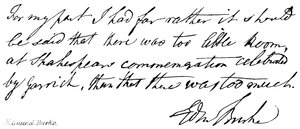 For my part I had far rather it should
be said that there was too little Room,
at Shakespears commemoration celebrated
by Garrick, than that there was too much.
Edm Burke
Edmund Burke.